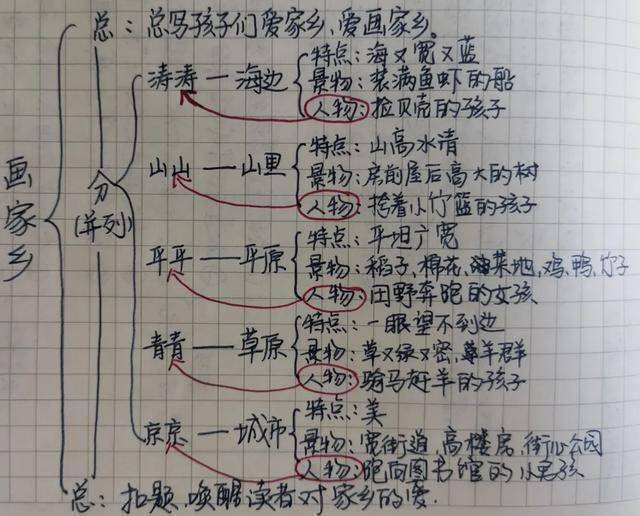 画家乡
总：总写孩子们爱家乡、爱画家乡。
分
(并列)
涛涛——海边
特点：海又宽又蓝
景物：装满鱼虾的船
人物：捡贝壳的孩子
山山——山里
特点：山高水清
景物：房前屋后高大的树
人物：挎着小竹篮的孩子
平平——平原
特点：平坦广宽
景物：稻子,棉花,油菜地,鸡,鸭,竹子
人物：田野奔跑的女孩
青青——草原
特点：一眼望不到边
景物：草又绿又密,羊群
人物：骑马赶羊的孩子
京京——城市
特点：美
景物：宽街道,高楼房,街心公园
人物：跑向图书馆的小男孩
总：扣题,唤醒读者对家乡的爱.